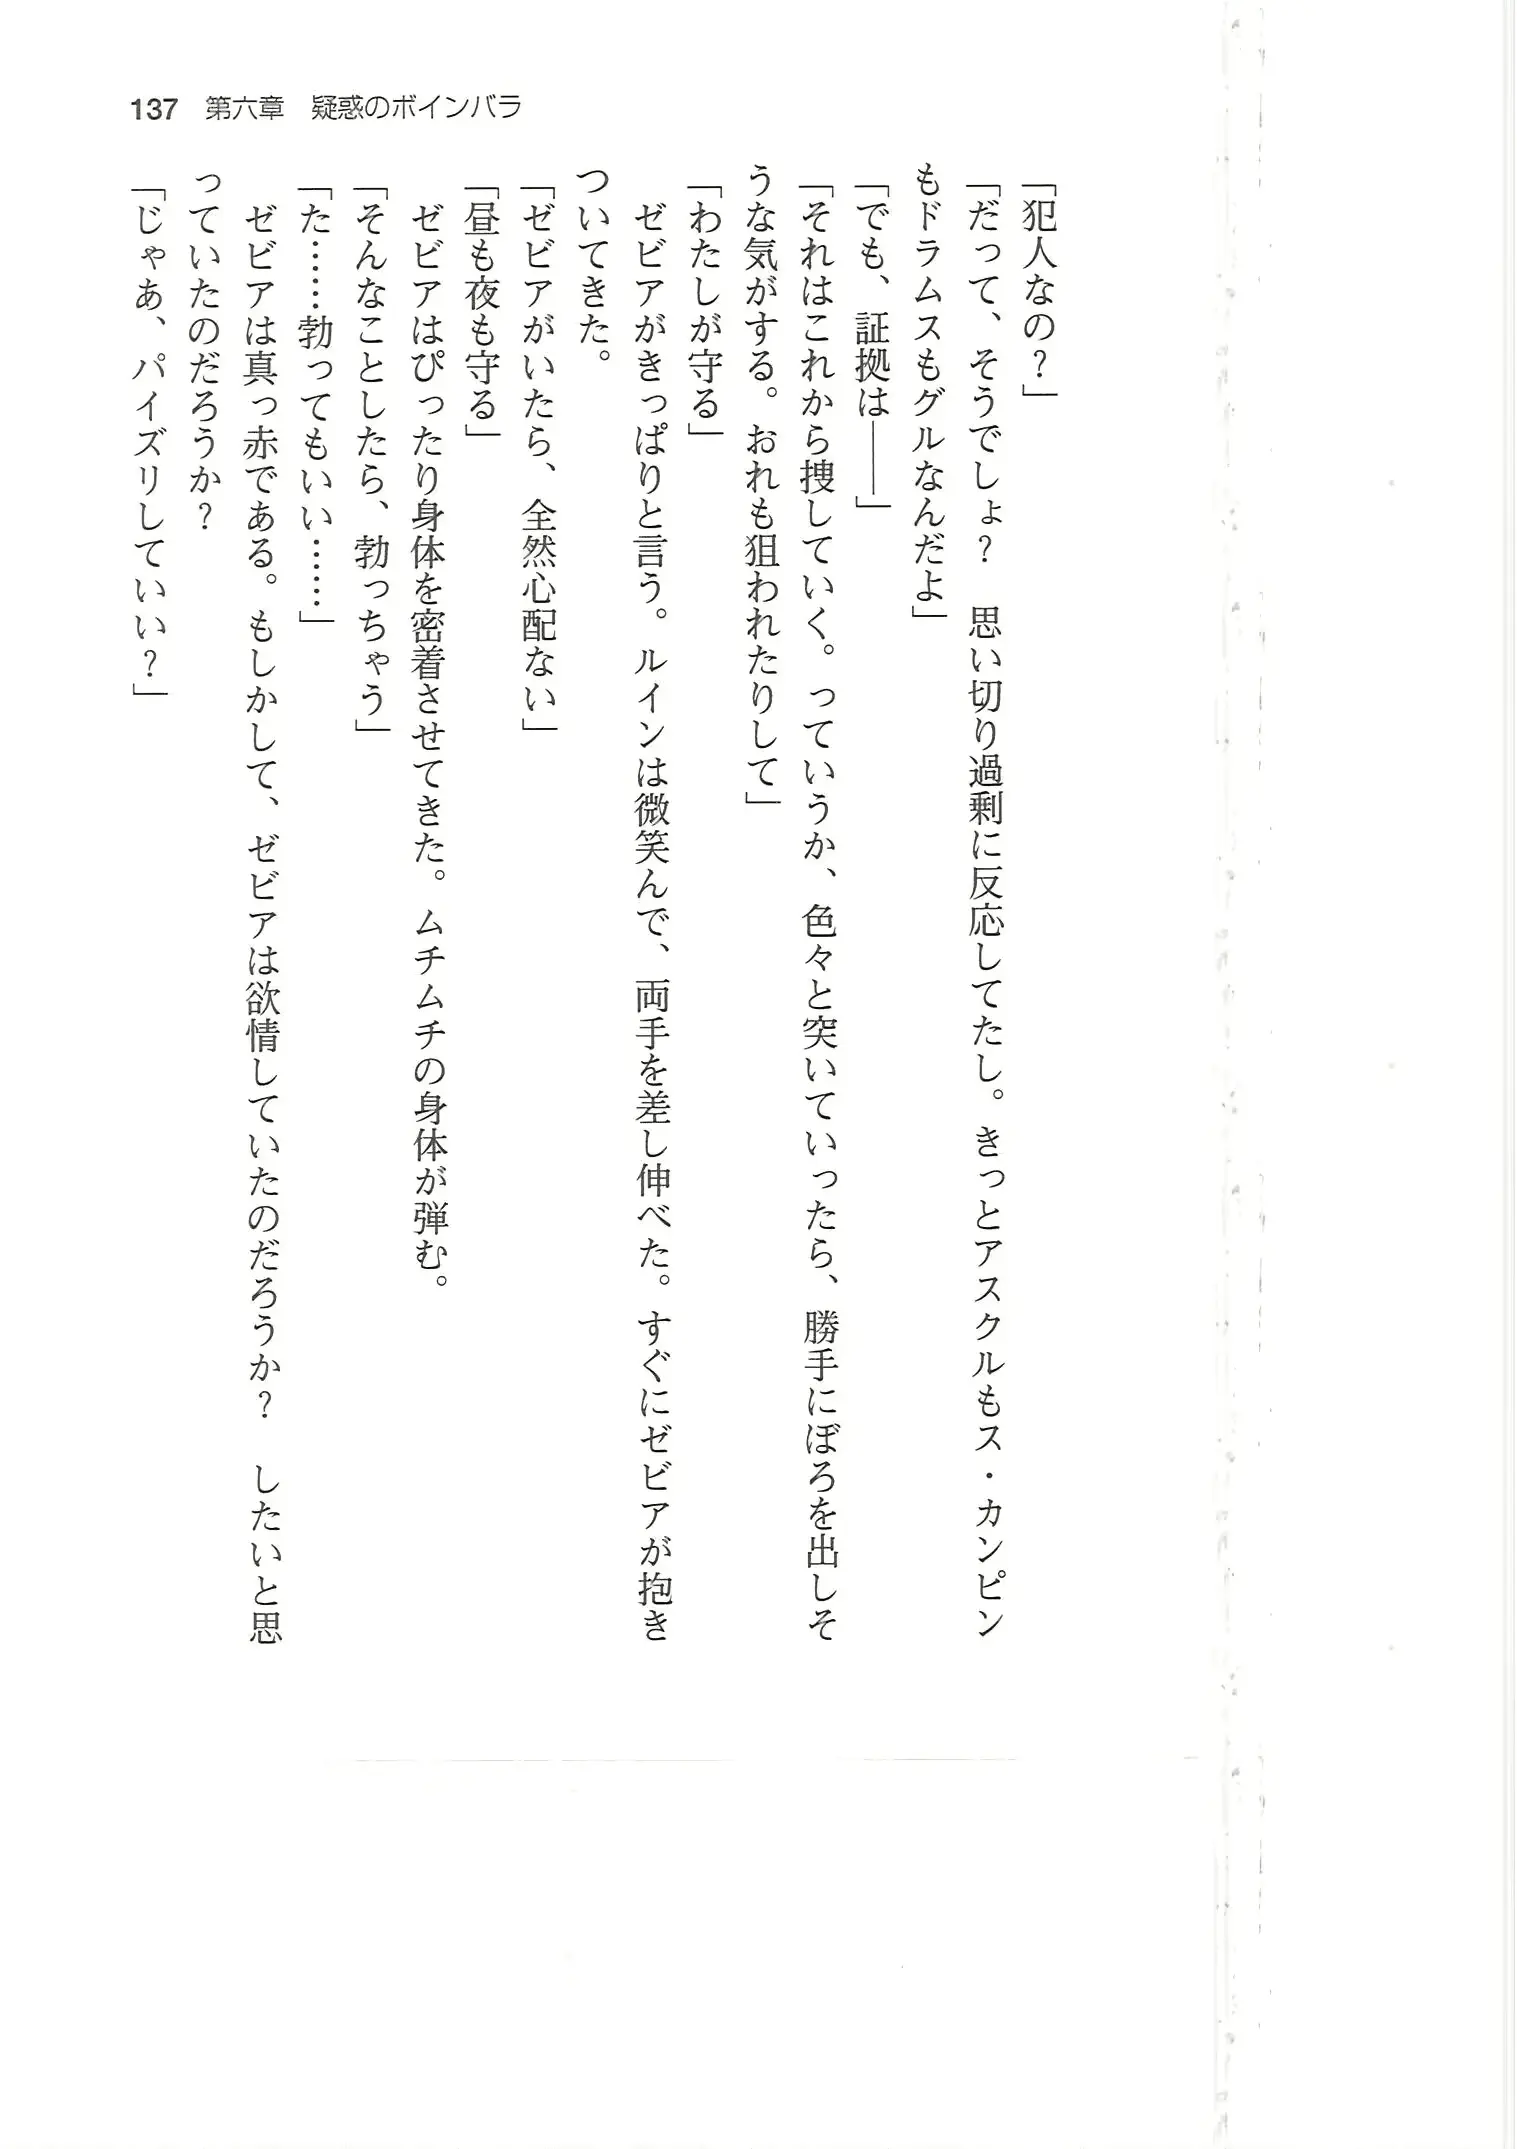 137 第六章 疑惑のボインバラ
「犯人なの？」
「だって、そうでしょ？　思い切り過剰に反応してたし。きっとアスクルもス・カンピン
もドラムスもグルなんだよ」
「でも、証拠は――」
「それはこれから捜していく。っていうか、色々と突いていったら、勝手にぼろを出しそ
うな気がする。おれも狙われたりして」
「わたしが守る」
　ゼビアがきっぱりと言う。ルインは微笑んで、両手を差し伸べた。すぐにゼビアが抱き
ついてきた。
「ゼビアがいたら、全然心配ない」
「昼も夜も守る」
　ゼビアはぴったり身体を密着させてきた。ムチムチの身体が弾む。
「そんなことしたら、勃っちゃう」
「た……勃ってもいい……」
　ゼビアは真っ赤である。もしかして、ゼビアは欲情していたのだろうか？　したいと思
っていたのだろうか？
「じゃあ、パイズリしていい？」